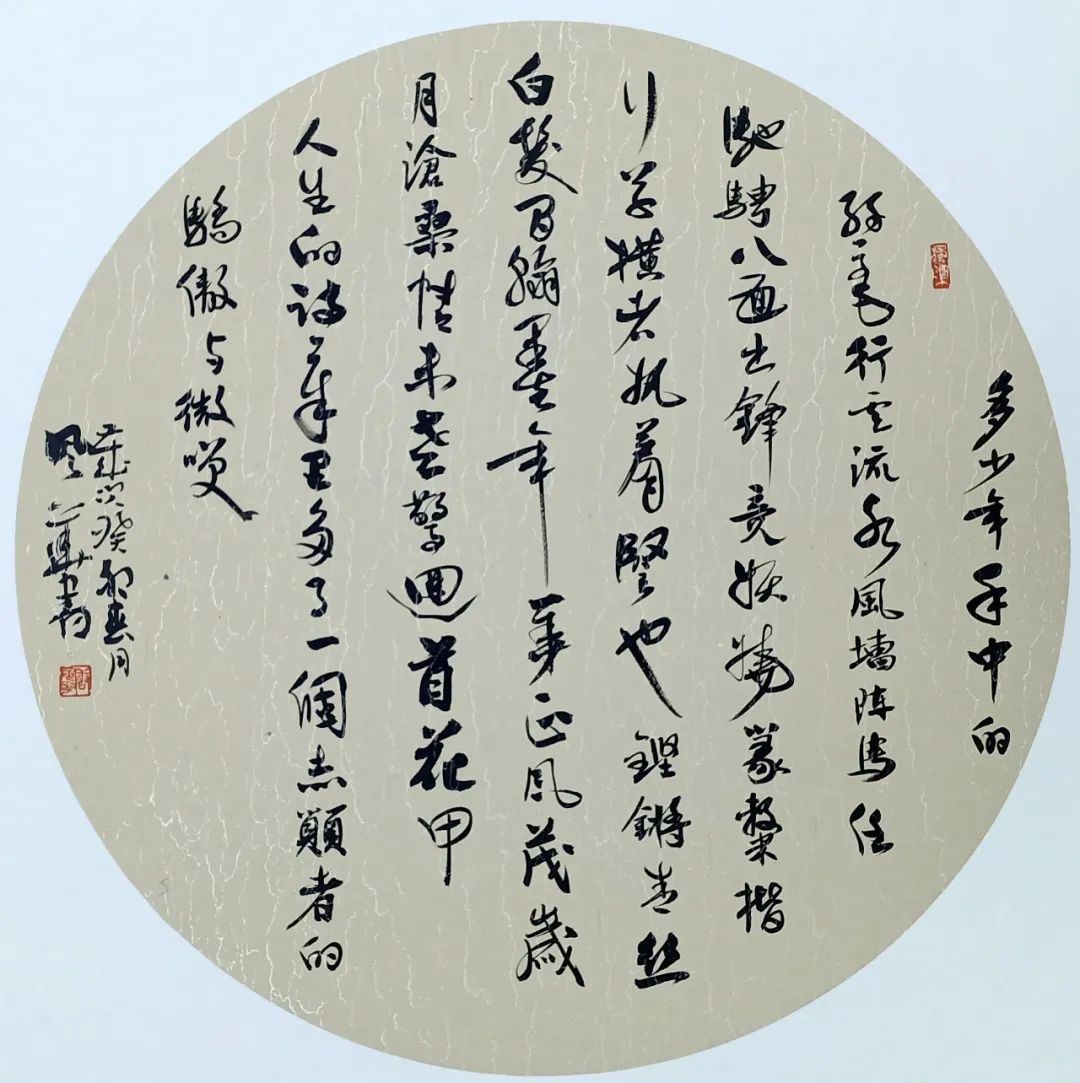 多少年手中的
狼毫行云流水風墻阵馬任
馳騁八面出鋒竞妖嬈篆隸楷
行草橫者執着竪也鏗鏘青絲
白髮間翰墨年華正風茂歲
月滄桑情未老驀迴首花甲
人生的詩笺里多了一個志顛者的
驕傲与微笑
歲次癸卯春月